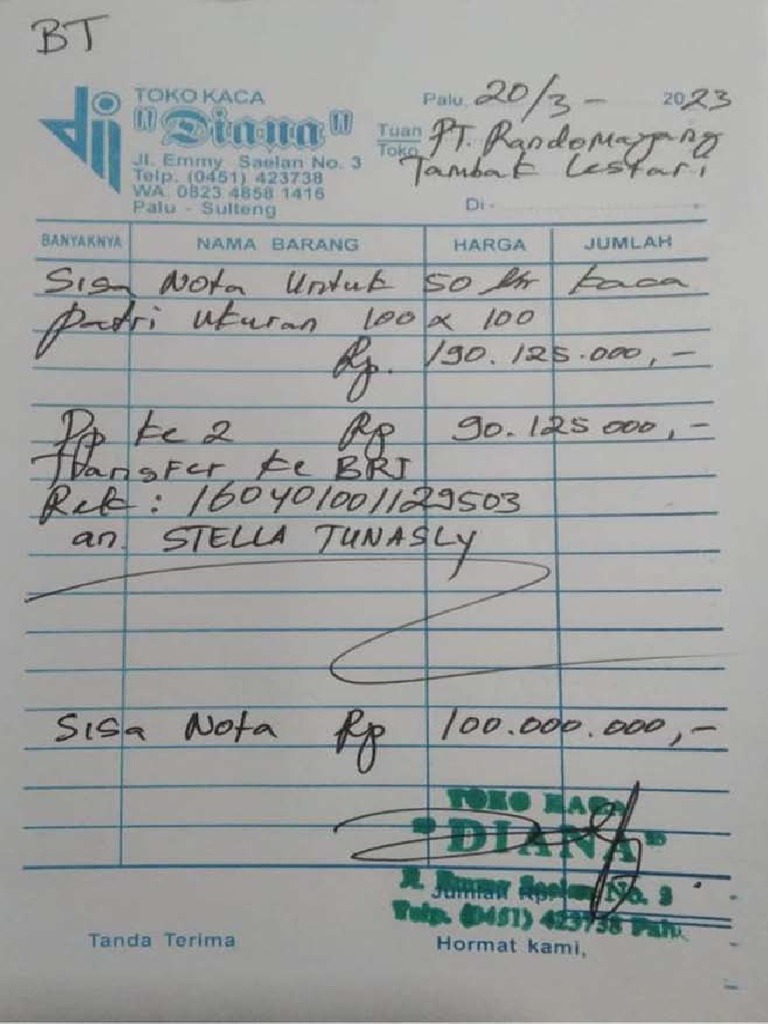 BT
dj
TOKO KACA
"Diana"
Jl. Emmy Saelan No. 3
Telp. (0451) 423738
WA 0823 4858 1416
Palu - Sulteng
Palu, 20/3 - 2023
Tuan
Toko
PT. Randomayang
Tambak Lestari
Di -
BANYAKNYA NAMA BARANG HARGA JUMLAH
Sisa Nota Untuk 50 lbr kaca
patri Ukuran 100 x 100
Rp. 190.125.000,-
Dp ke 2 Rp 90.125 000,-
Transfer ke BRI
Rek : 160401001129503
an. STELLA TUNASLY
Sisa Nota Rp 100.000.000,-
TOKO KACA
"DIANA"
Jl. Emmy Saelan No. 3
Jumlah Rp.
Telp. (0451) 423738 Palu.
Tanda Terima
Hormat kami,